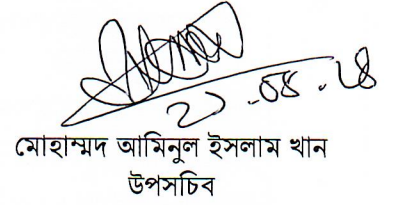 ২১.০৪.২৪
মোহাম্মদ আমিনুল ইসলাম খান
উপসচিব